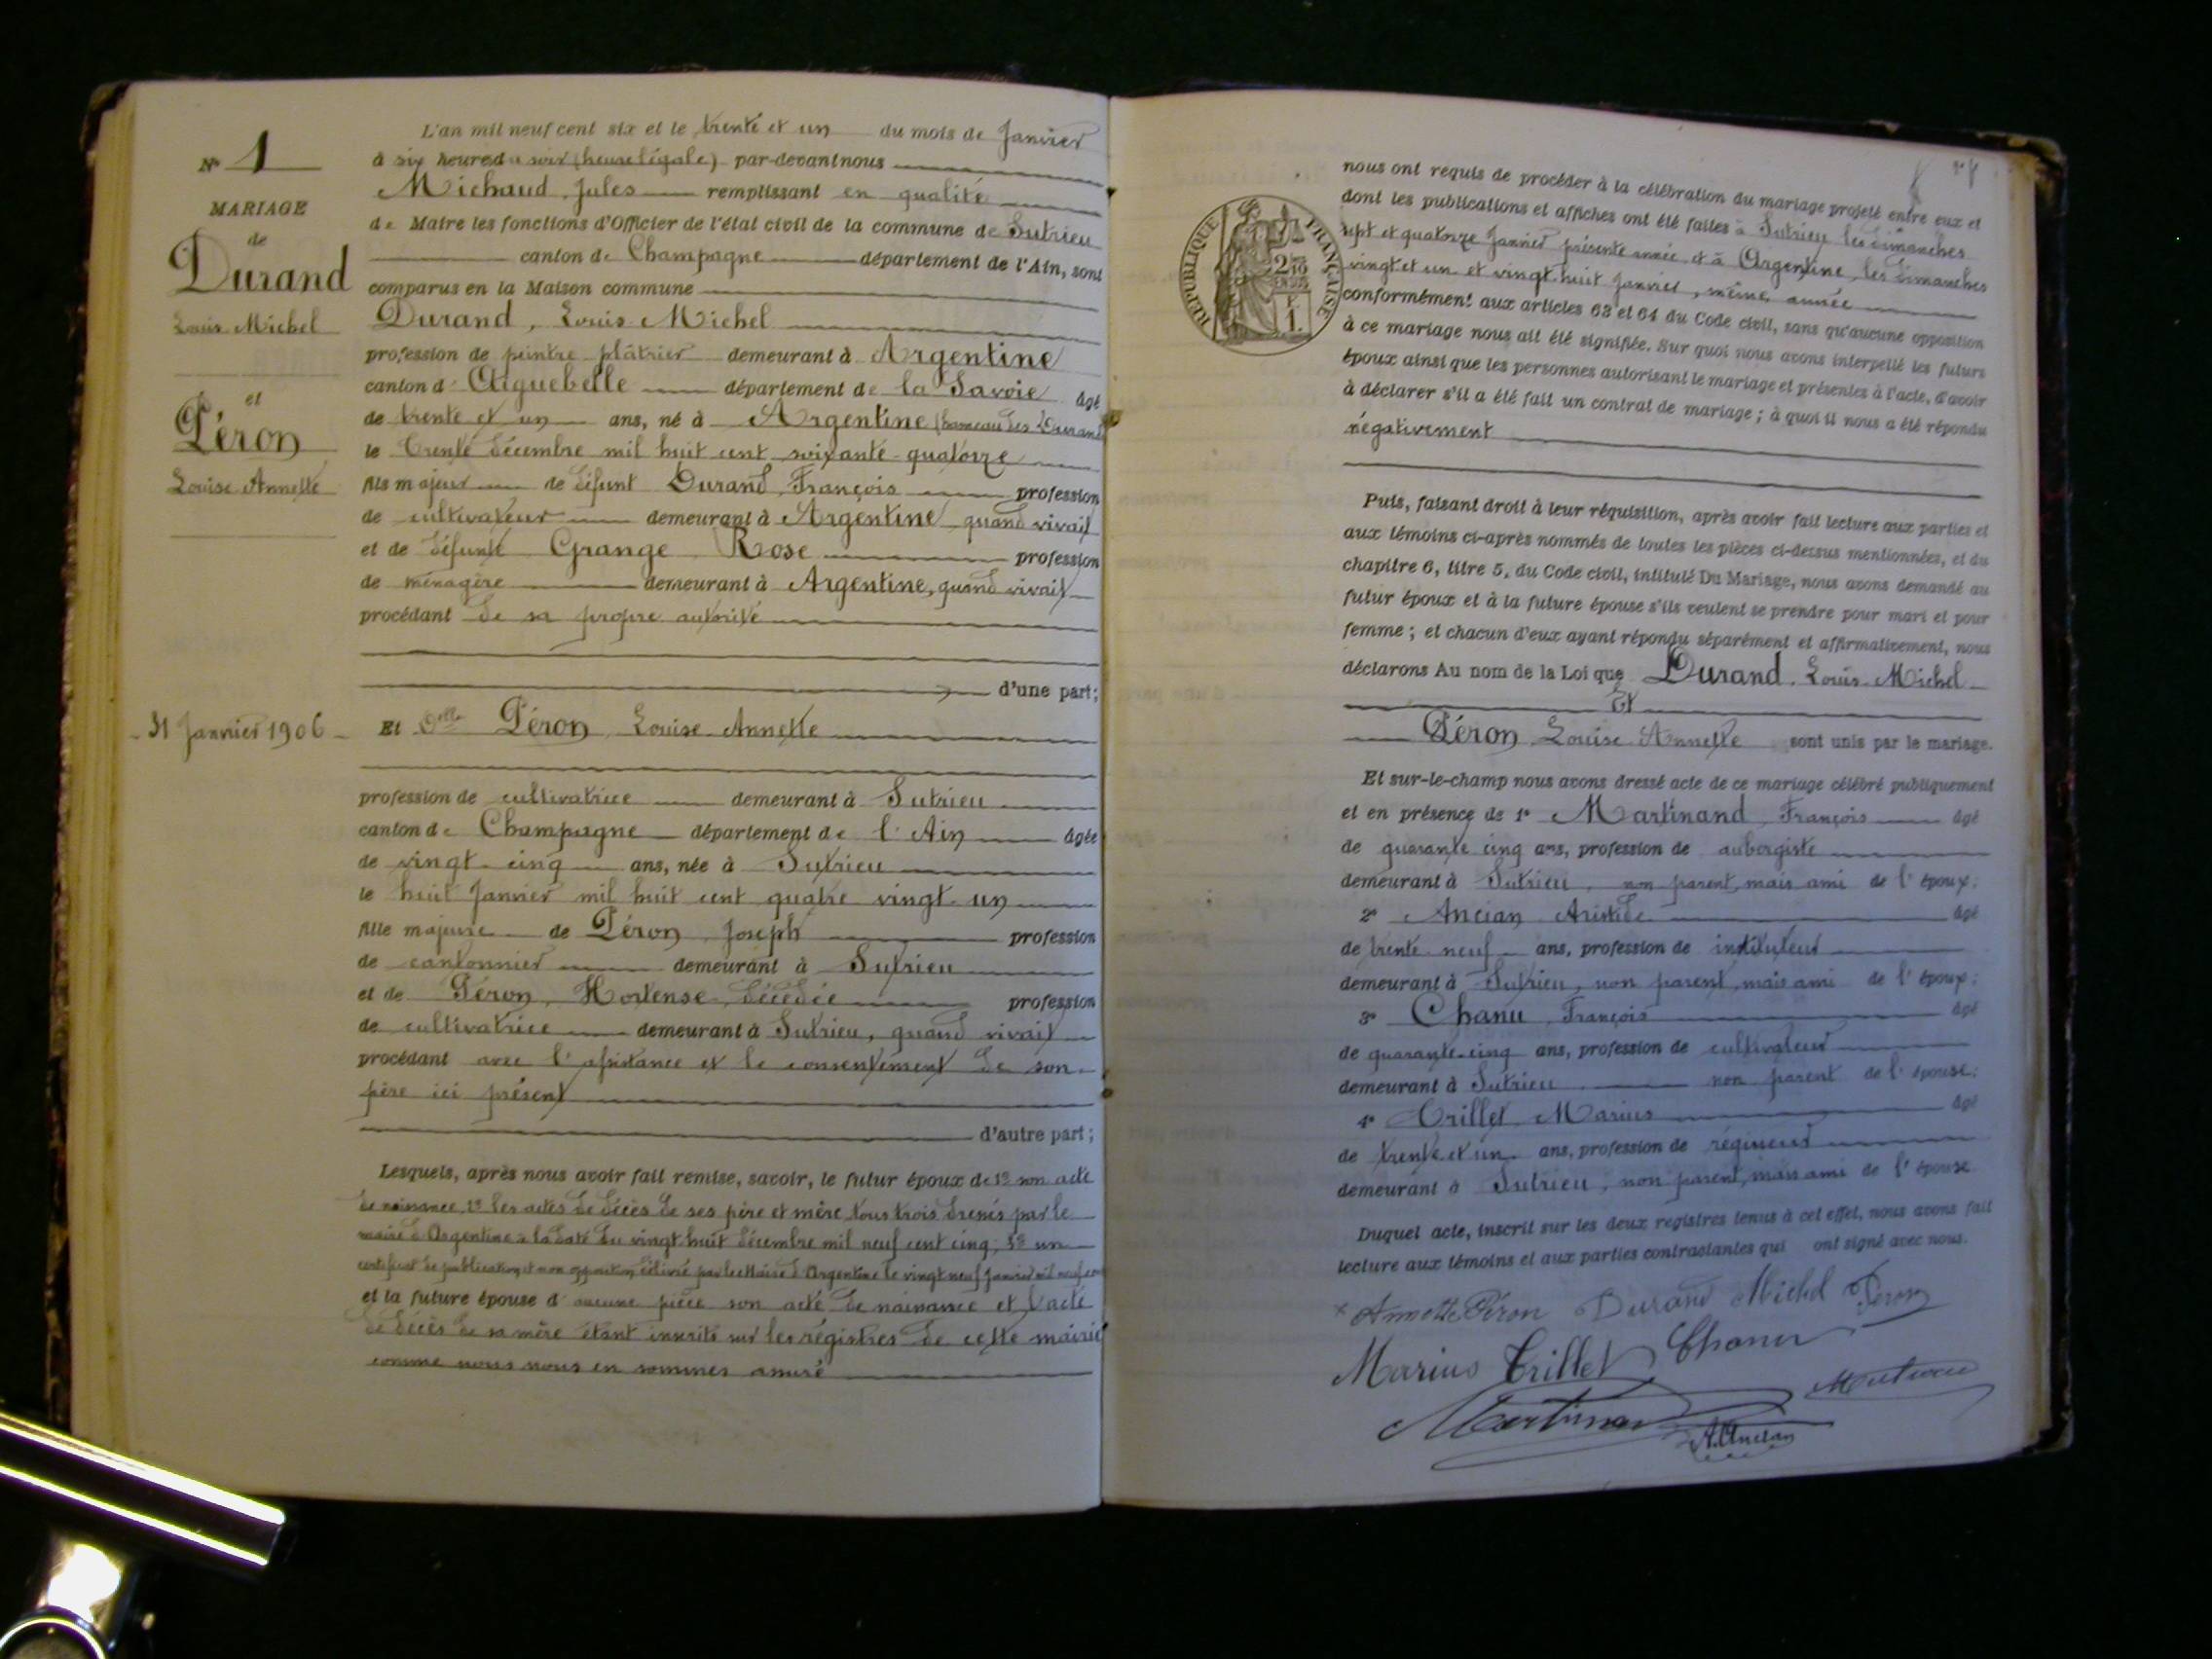 N° 1
MARIAGE
de
Durand
Louis Michel
et
Péron
Louise Annette
31 Janvier 1906
L'an mil neuf cent six et le trente et un du mois de Janvier
à six heures du soir (heure légale) par-devant nous
Michaud, Jules remplissant en qualité
de Maire les fonctions d'Officier de l'état civil de la commune de Sutrieu
canton de Champagne département de l'Ain, sont
comparus en la Maison commune
Durand, Louis Michel
profession de peintre plâtrier demeurant à Argentine
canton d' Aiguebelle département de la Savoie âgé
de trente et un ans, né à Argentine (hameau des Durand
le trente décembre mil huit cent soixante quatorze
fils majeur de défunt Durand, François profession
de cultivateur demeurant à Argentine quand vivait
et de défunte Grange Rose profession
de ménagère demeurant à Argentine, quand vivait
procédant de sa propre autorité
d'une part;
Et Dlle Péron Louise Annette
profession de cultivatrice demeurant à Sutrieu
canton de Champagne département de l'Ain âgée
de vingt cinq ans, née à Sutrieu
le huit Janvier mil huit cent quatre vingt un
fille majeure de Péron, Joseph profession
de cantonnier demeurant à Sutrieu
et de Péron, Hortense, décédée profession
de cultivatrice demeurant à Sutrieu, quand vivait
procédant avec l'assistance et le consentement de son
père ici présent
d'autre part;
Lesquels, après nous avoir fait remise, savoir, le futur époux de 1° son acte
de naissance, 2° les actes de décès de ses père et mère, tous trois dressés par le
maire d'Argentine à la date du vingt huit décembre mil neuf cent cinq; 3° un
certificat de publication et non opposition délivré par le Maire d'Argentine le vingt neuf Janvier mil neuf cent
et la future épouse d'aucune pièce son acte de naissance et l'acte
de décès de sa mère étant inscrits sur les régistres de cette mairie
comme nous nous en sommes assuré
RÉPUBLIQUE FRANÇAISE
nous ont requis de procéder à la célébration du mariage projeté entre eux et
dont les publications et affiches ont été faites à Sutrieu les dimanches
sept et quatorze Janvier présente année et à Argentine, les dimanches
vingt et un et vingt-huit Janvier, même année
conformément aux articles 63 et 64 du Code civil, sans qu'aucune opposition
à ce mariage nous ait été signifiée. Sur quoi nous avons interpellé les futurs
époux ainsi que les personnes autorisant le mariage et présentes à l'acte, d'avoir
à déclarer s'il a été fait un contrat de mariage; à quoi il nous a été répondu
négativement
Puis, faisant droit à leur réquisition, après avoir fait lecture aux parties et
aux témoins ci-après nommés de toutes les pièces ci-dessus mentionnées, et du
chapitre 6, titre 5, du Code civil, intitulé Du Mariage, nous avons demandé au
futur époux et à la future épouse s'ils veulent se prendre pour mari et pour
femme; et chacun d'eux ayant répondu séparément et affirmativement, nous
déclarons Au nom de la Loi que Durand, Louis Michel
Et
Péron, Louise Annette sont unis par le mariage.
Et sur-le-champ nous avons dressé acte de ce mariage célébré publiquement
et en présence de 1° Martinand, François âgé
de quarante cinq ans, profession de aubergiste
demeurant à Sutrieu, non parent, mais ami de l'époux;
2° Ancian Aristide âgé
de trente neuf ans, profession de instituteur
demeurant à Sutrieu, non parent, mais ami de l'époux;
3° Chanu François âgé
de quarante-cinq ans, profession de cultivateur
demeurant à Sutrieu non parent de l'épouse;
4° Trillet, Marius âgé
de trente et un ans, profession de régisseur
demeurant à Sutrieu, non parent, mais ami de l'épouse
Duquel acte, inscrit sur les deux registres tenus à cet effet, nous avons fait
lecture aux témoins et aux parties contractantes qui ont signé avec nous.
x Annette Péron Durand Michel Péron
Marius Trillet Chanu
Martinand
A. Ancian